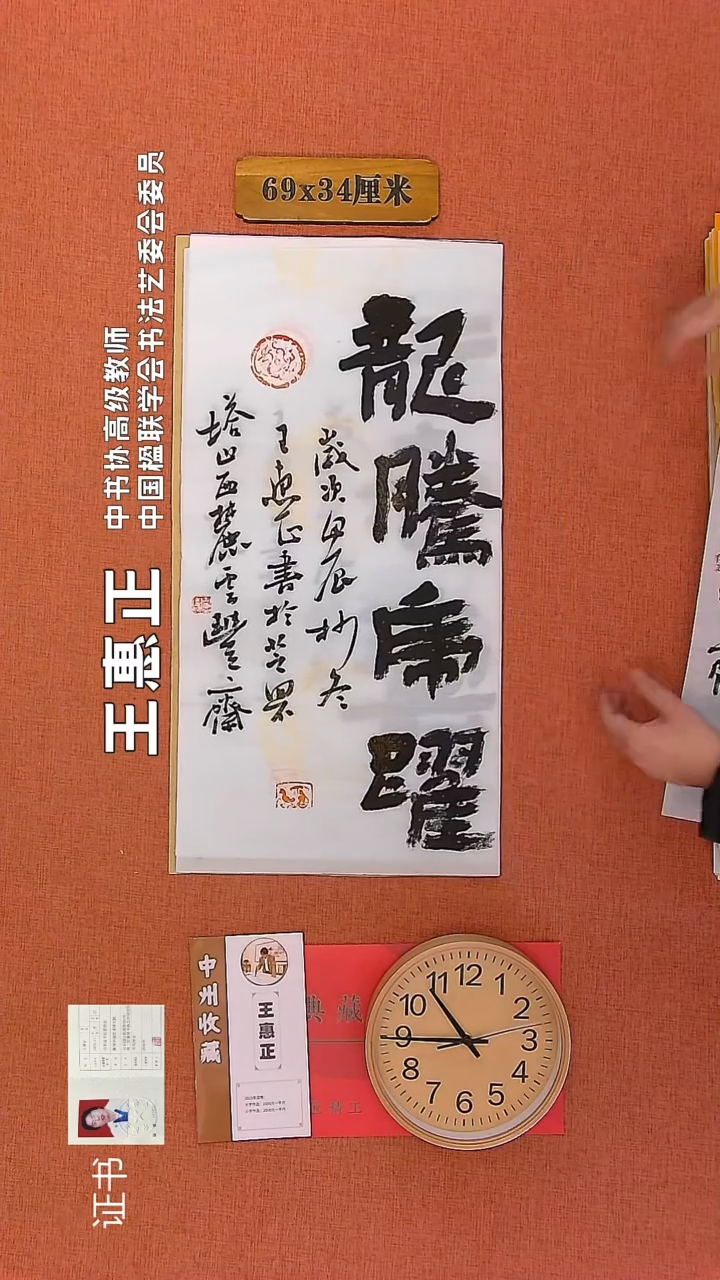 69x34厘米
中书协高级教师
中国楹联学会书法艺委会委员
王惠正
龍騰虎躍
歲次甲辰杪冬
王惠正書於芝罘
塔山西麓雲豐齋
中州收藏
王惠正
典藏
12
1
2
3
4
5
6
7
8
9
10
11
证书